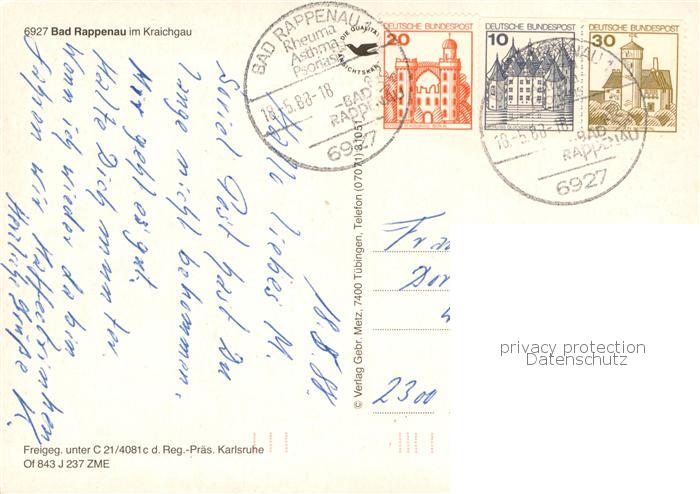 6927 Bad Rappenau im Kraichgau
BAD RAPPENAU 1
Rheuma
Asthma
Psoriasis
18.-5.88-18
BAD
RAPPENAU
6927
DEUTSCHE BUNDESPOST
20
DEUTSCHE BUNDESPOST
10
DEUTSCHE BUNDESPOST
30
18.-5.88-18
BAD
RAPPENAU
6927
18.5.88.
Hallo liebes M.
Soviel Post hast Du
lange nicht bekommen,
Mir geht es gut.
Halte Dich munter.
Wenn ich wieder da bin
fahren wir Kaffeetrinken
Herzliche Grüße K.
© Verlag Gebr. Metz, 7400 Tübingen, Telefon (07071) 81051
2300
privacy protection
Datenschutz
Freigeg. unter C 21/4081c d. Reg.-Präs. Karlsruhe
Of 843 J 237 ZME